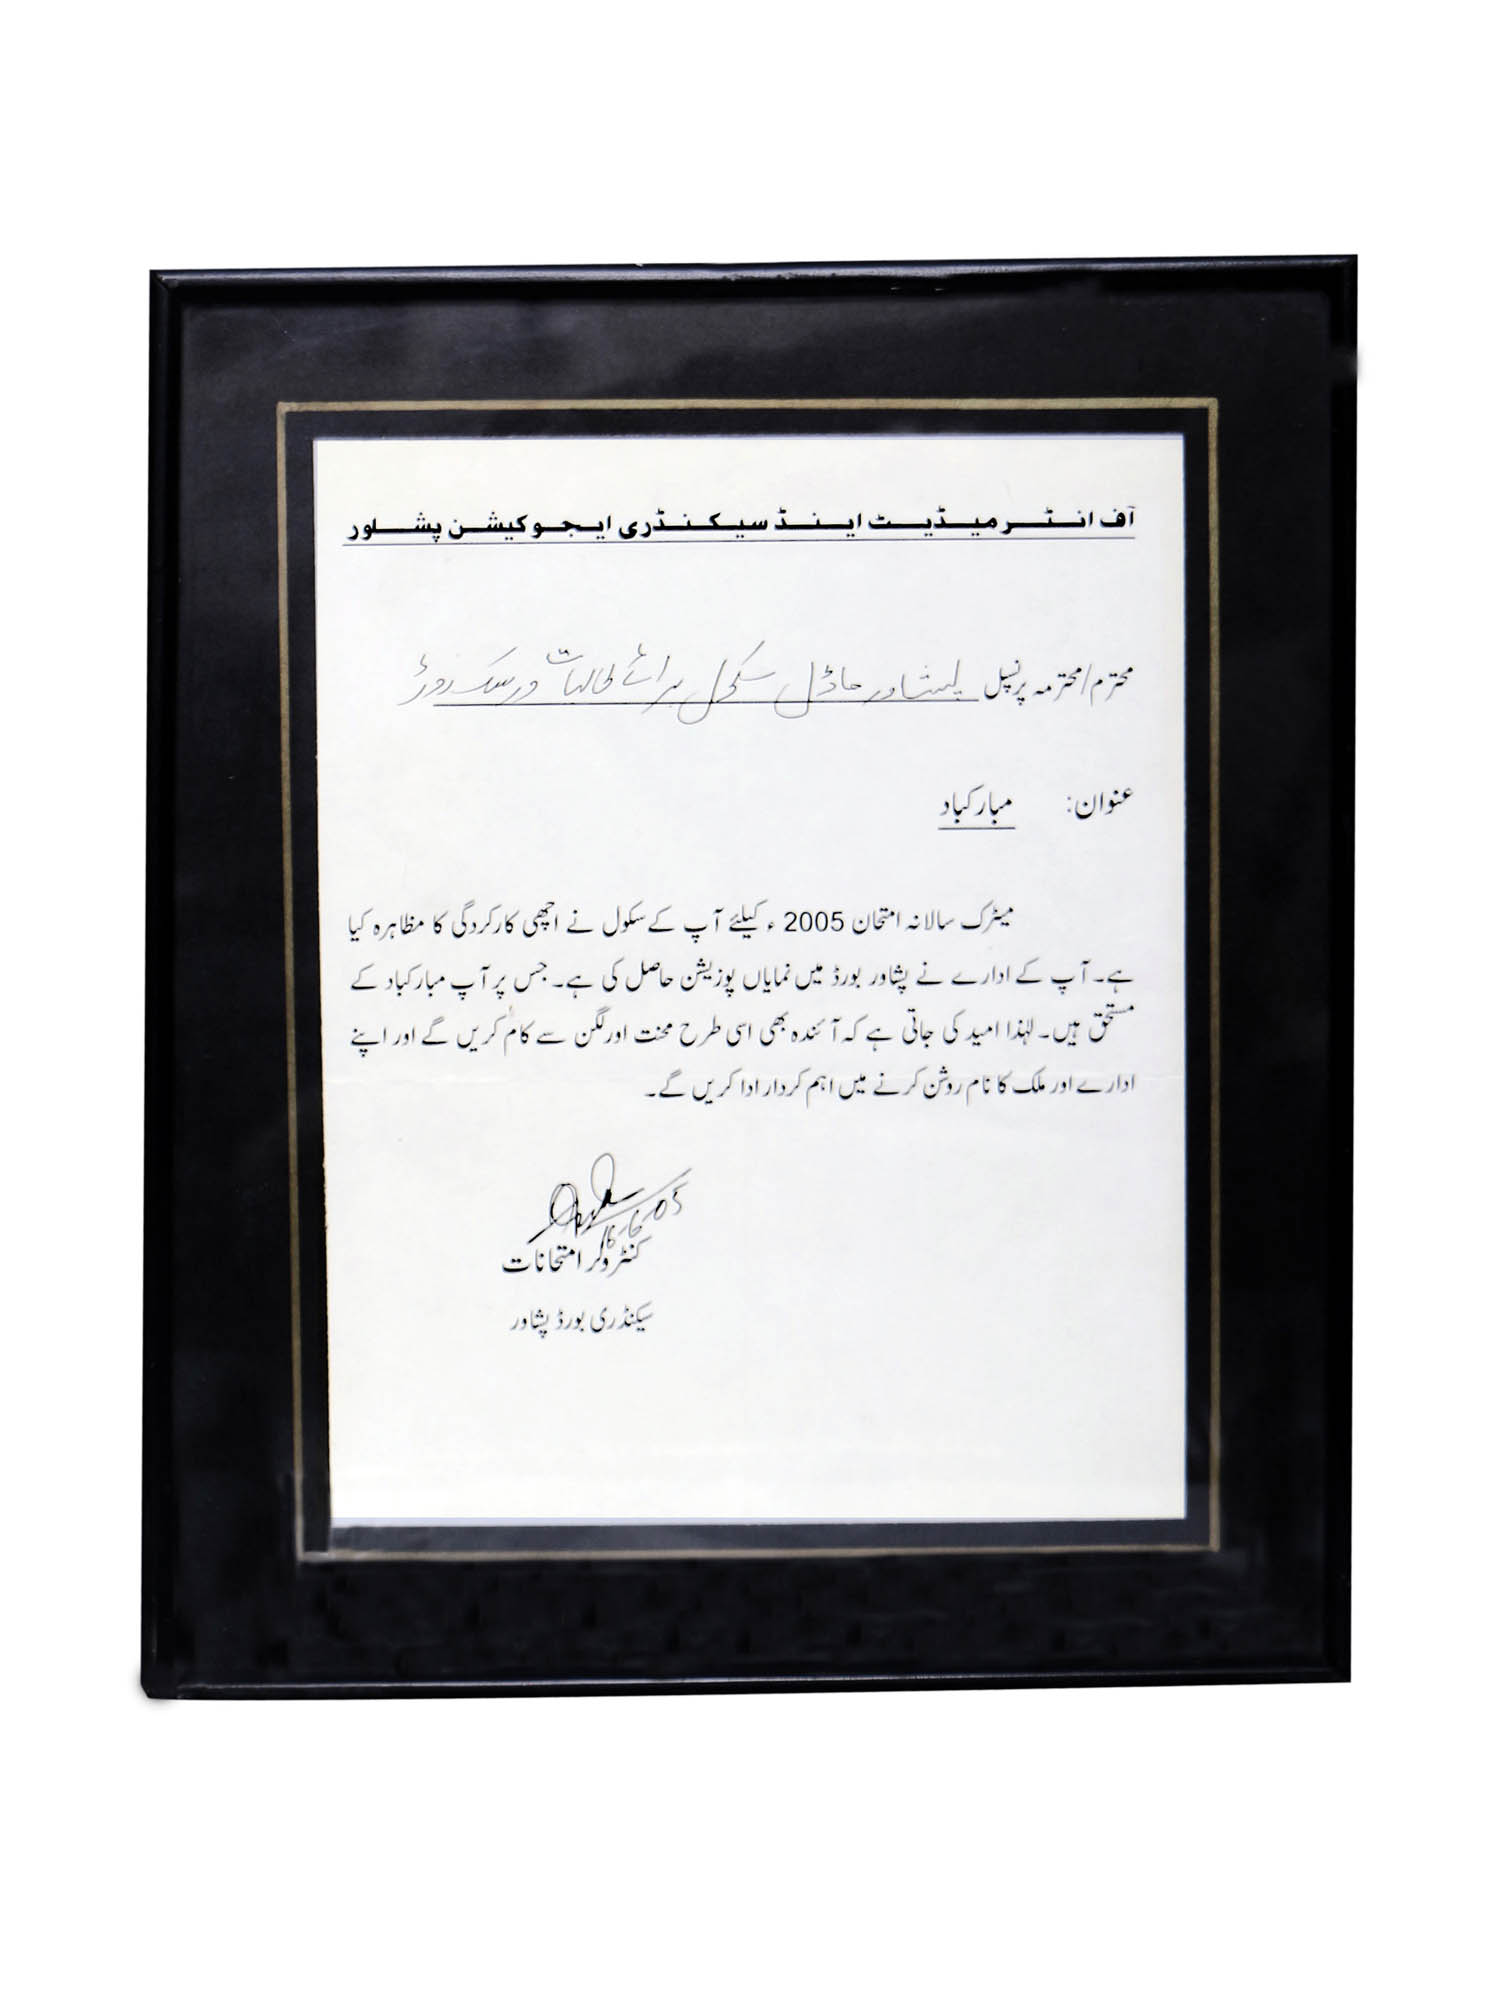 آف انٹرمیڈیٹ اینڈ سیکنڈری ایجوکیشن پشاور
محترم/محترمہ پرنسپل پشاور ماڈل سکول برائے طالبات ورسک روڈ
عنوان: مبارکباد
میٹرک سالانہ امتحان 2005 ء کیلئے آپ کے سکول نے اچھی کارکردگی کا مظاہرہ کیا
ہے۔ آپ کے ادارے نے پشاور بورڈ میں نمایاں پوزیشن حاصل کی ہے۔ جس پر آپ مبارکباد کے
مستحق ہیں۔ لہٰذا امید کی جاتی ہے کہ آئندہ بھی اسی طرح محنت اور لگن سے کام کریں گے اور اپنے
ادارے اور ملک کا نام روشن کرنے میں اہم کردار ادا کریں گے۔
کنٹرولر امتحانات
سیکنڈری بورڈ پشاور